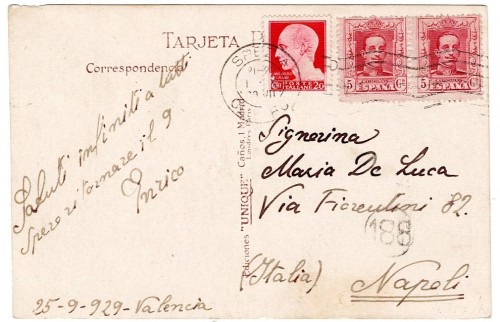 TARJETA P
Correspondencia
Saluti infiniti a tutti
Spero ritornare il 9
Enrico
25-9-929-Valencia
Ediciones "UNIQUE" Caños 1 Madrid
POSTE ITALIANE
20
5 Cs 5 Cs
ESPAÑA ESPAÑA
Signorina
Maria De Luca
Via Fiorentini 82.
188
(Italia) Napoli